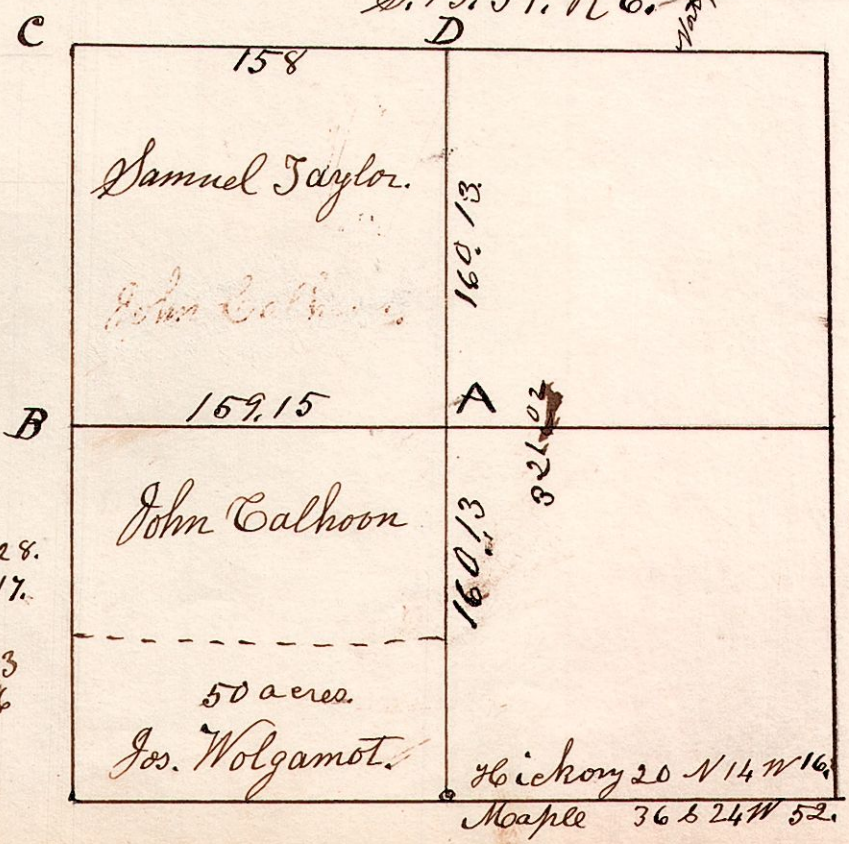 C
D
158
Samuel Taylor.
160.13.
John Calhoon.
159.15
A
B
John Calhoon
160.13
28.
17.
3
50 acres.
Jos. Wolgamot.
Hickory 20 N 14 W 16.
Maple 36 S 24 W 52.